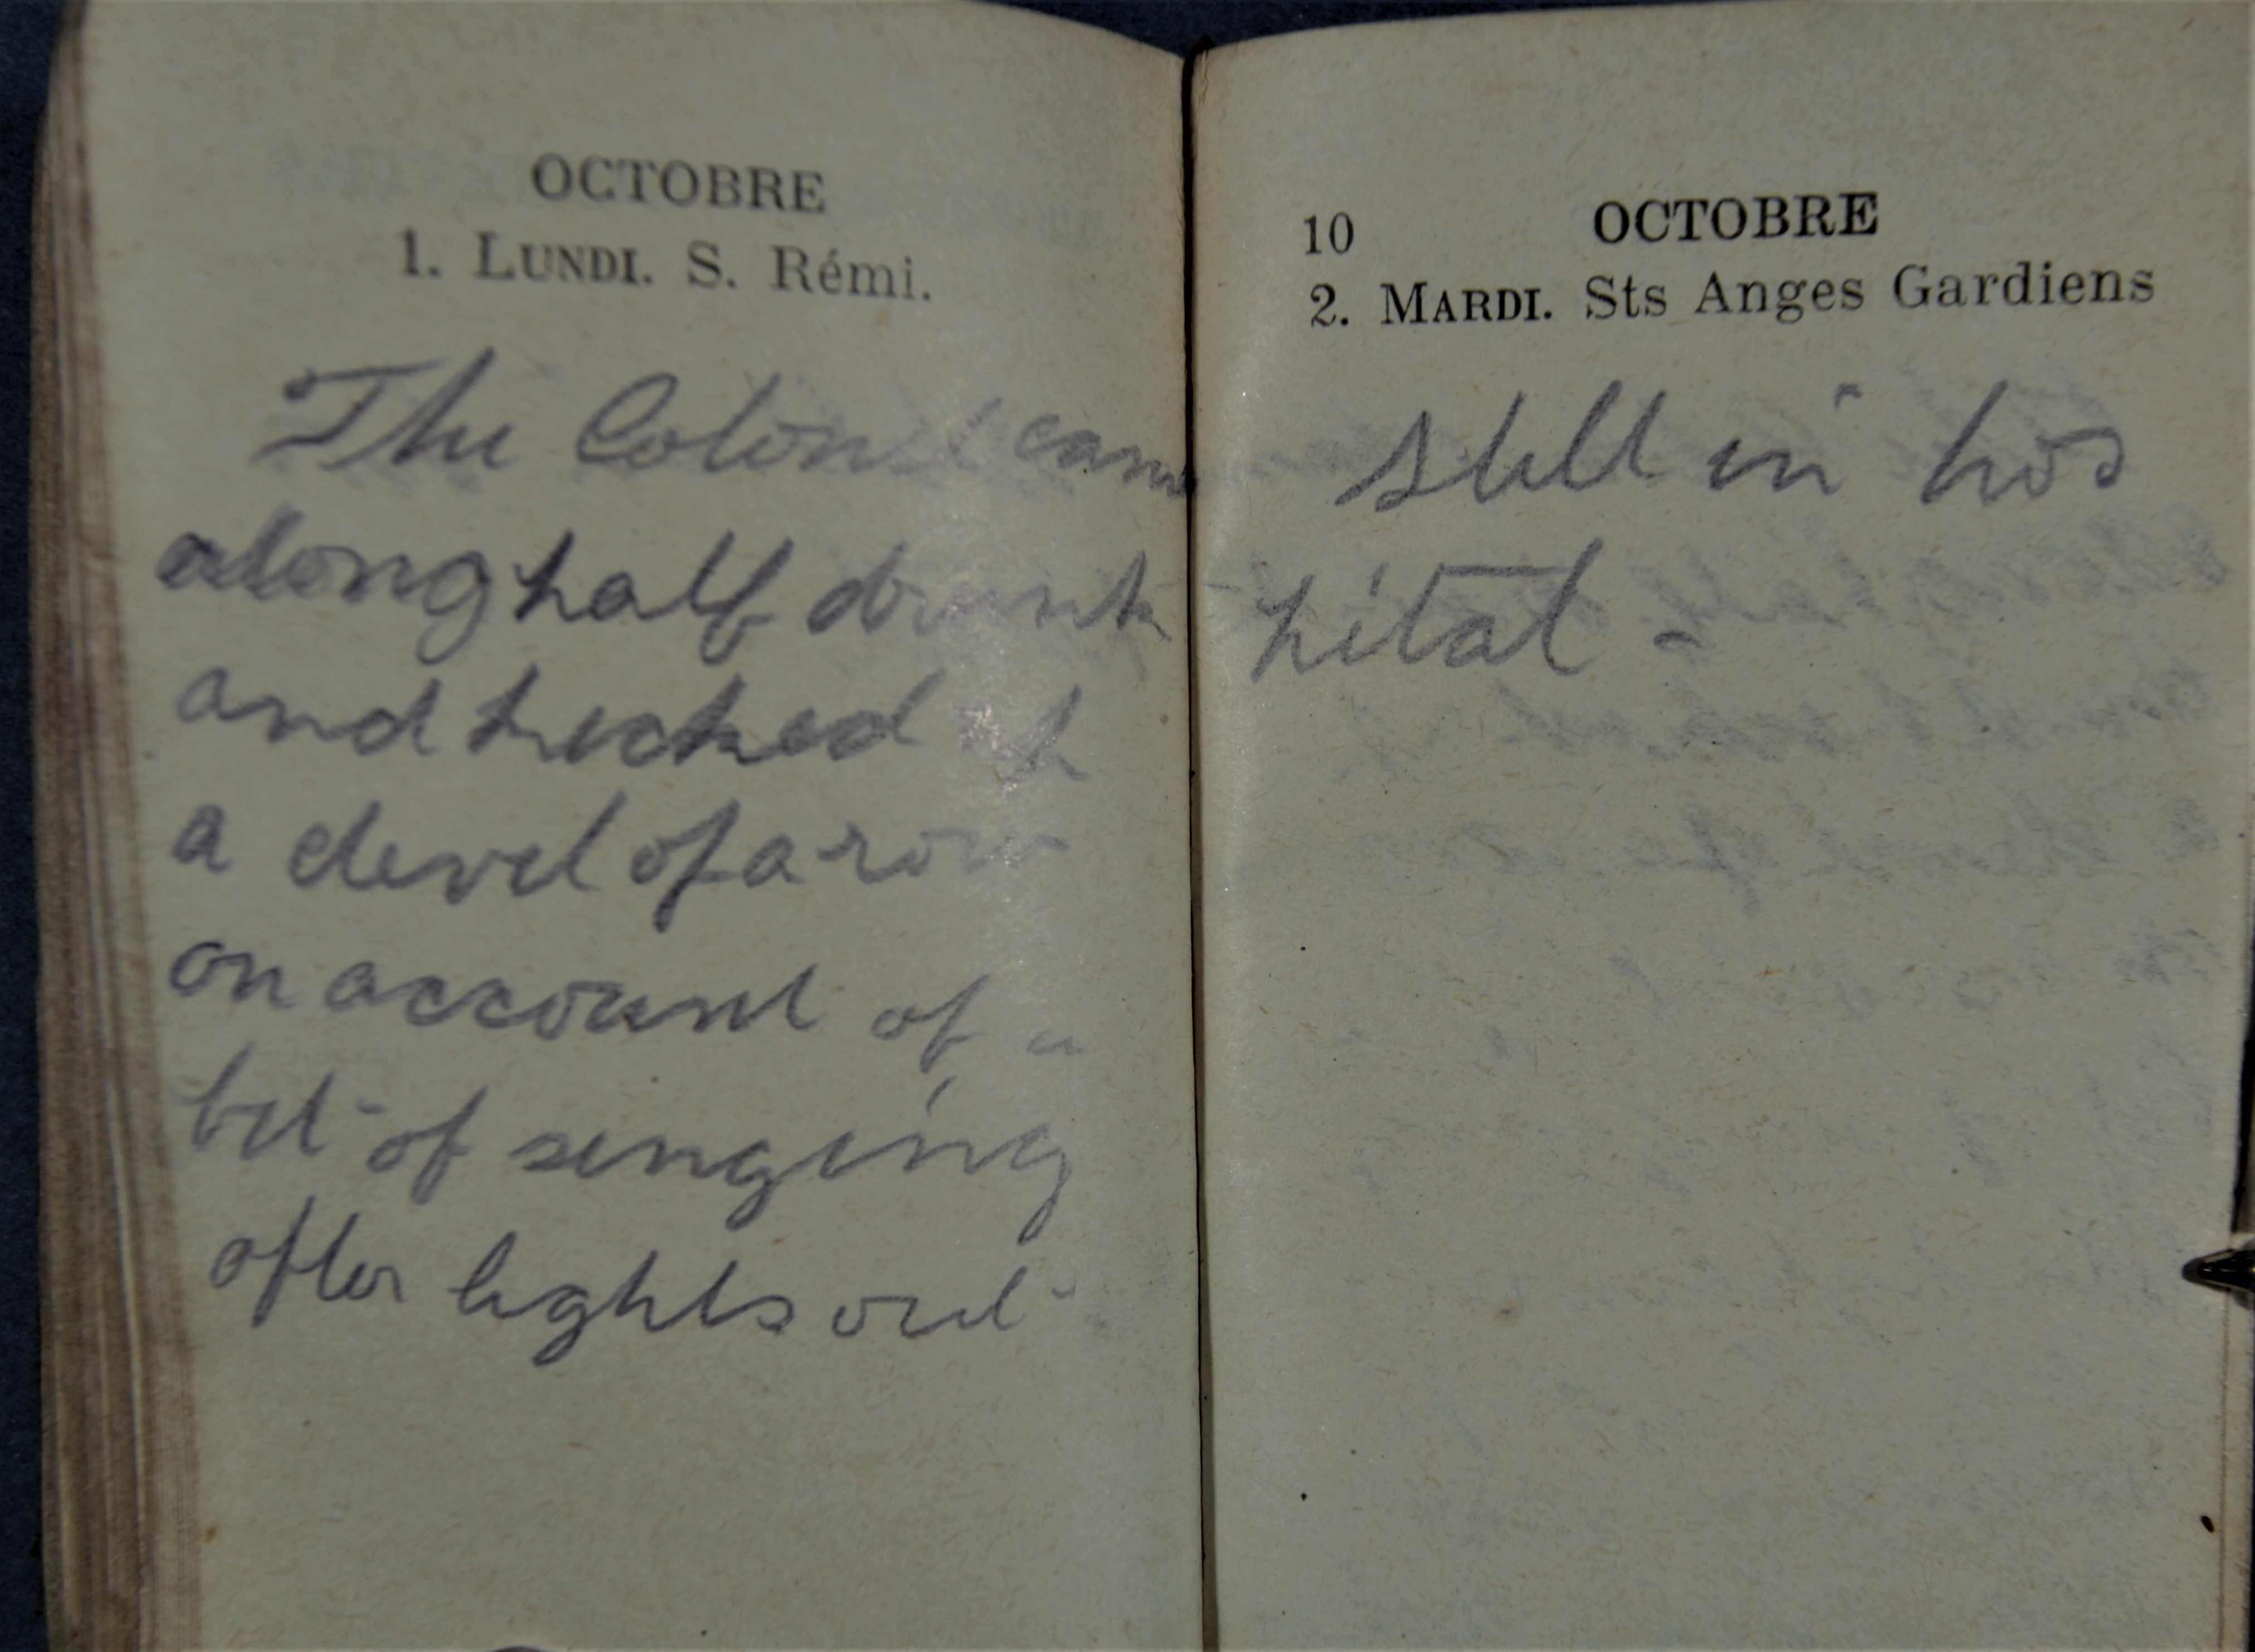 OCTOBRE
1. LUNDI. S. Rémi.
The Colonel came
along half drunk
and kicked up
a devil of a row
on account of a
bit of singing
after lights out
10 OCTOBRE
2. MARDI. Sts Anges Gardiens
still in hos
pital -